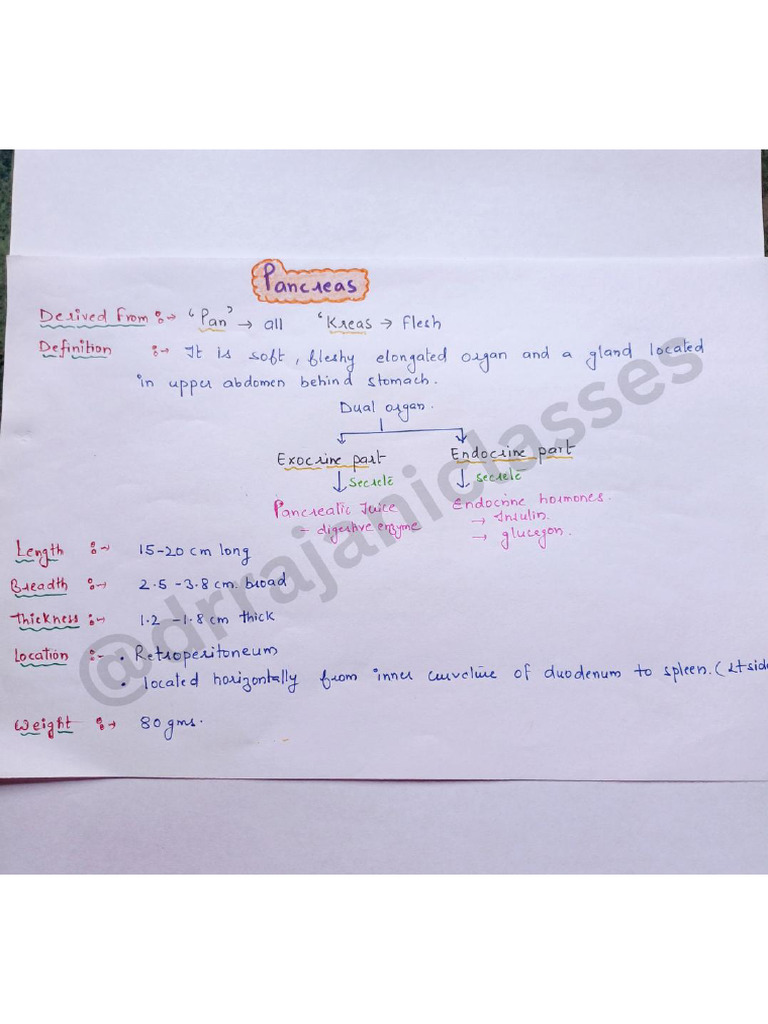 Pancreas
Derived from :→ "Pan" → all "Kreas → Flesh
Definition :→ It is soft, fleshy elongated organ and a gland located
in upper abdomen behind stomach.
Dual organ.
Exocrine part Endocrine part
↓ secrete ↓ secrete
Pancreatic Juice Endocrine hormones.
- digestive enzyme → Insulin.
→ glucegon.
Length :→ 15-20 cm long
Breadth :→ 2.5-3.8 cm. broad
Thickness :→ 1.2-1.8 cm thick
Location :- • Retroperitoneum
• located horizontally from inner curveture of duodenum to spleen. (Lt side
Weight :→ 80 gms.
@drrajaniclasses